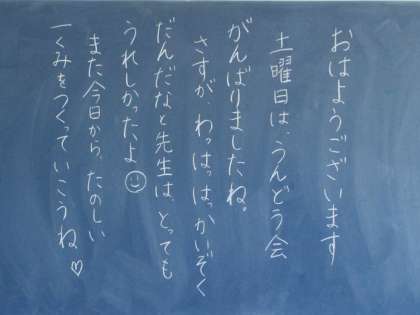 おはようございます
土曜日は、うんどう会
がんばりましたね。
さすが、わっはっはっかいぞく
だんだなと先生は、とっても
うれしかったよ☺
また今日から、たのしい
一くみをつくっていこうね♡